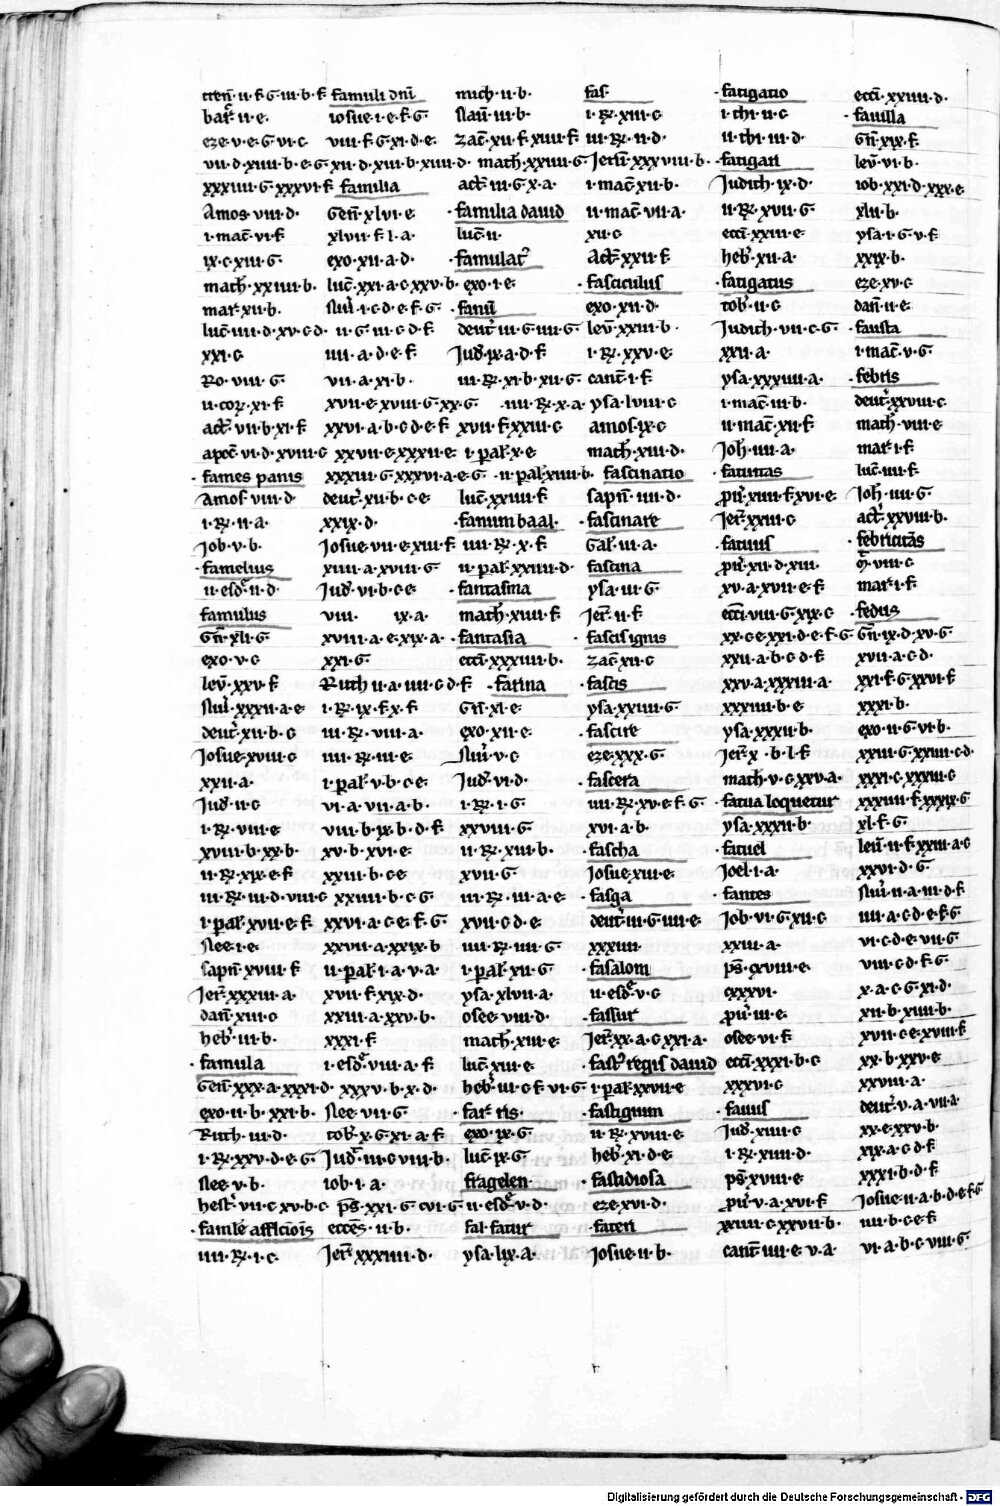 tren̄·ii·f·G·iii·b·f
bar·ii·e·
eze·v·e·G·vi·c
vii·d·xiiii·b·e·G
xxxiiii·G·xxxvi·f
Amos·viii·d·
i·mac̄·vi·f
ix·c·xiii·G·
math̄·xxiiii·b·
mar·xii·b·
luc̄·iiii·d·xv·c·d·
xxi·c
Ro·viii·G·
ii·cor·xi·f
act̄·vii·b·xi·f
apoc̄·vi·d·xviii·c
·fames panis
Amos·viii·d
i·R·ii·a·
Job·v·b·
·famelius
ii·esd·ii·d·
famulus
Gn̄·xli·G
exo·v·c
lev̄·xxv·f
Nu·xxxii·a·e
deut·xii·b·c
Josue·xviii·c
xxii·a·
Jud·ii·c
i·R·viii·e
xviii·b·xx·b·
ii·R·xix·e·f
iii·R·iii·d·viii·c
i·pal·xvii·e·f
Nee·i·e·
sapn̄·xviii·f
Jer·xxxiii·a·
dan̄·xiii·c
heb·iii·b·
·famula
Gen̄·xxx·a·xxxi·d·
exo·ii·b·xxi·b·
Ruth·iii·d·
i·R·xxv·d·e·G
Nee·v·b·
hest·vii·c·xv·b·c
·famīle afflictiōis
iiii·R·i·c·
famuli dn̄i
iosue·i·e·f·G·
viii·f·G·xi·d·e·
xii·d·xiii·b·xiiii·d·
familia
Gen̄·xlvi·e·
xlvii·f·l·a·
exo·xii·a·d·
luc̄·xxi·a·c·xxv·b·
Nu·i·c·d·e·f·G·
ii·G·iii·c·d·f
iiii·a·d·e·f
vii·a·xi·b·
xvii·e·xviii·G·xx·G·
xxvi·a·b·c·d·e·f
xxvii·e·xxxii·e
xxxiii·G·xxxvi·a·e·G
deut·xii·b·c·e·
xxix·d·
Josue·vii·e·xiii·f
xiiii·a·xviii·G
Jud·vi·b·c·e
viii· ix·a·
xviii·a·e·xix·a·
xxi·G·
Ruth ii·a·iiii·c·d·f
i·R·ix·f·x·f
iii·R·viii·a·
iiii·R·iii·e·
i·pal·v·b·c·e·
vi·a·vii·a·b·
viii·b·ix·b·d·f
xv·b·xvi·e·
xxiii·b·c·e
xxiiii·b·c·G
xxvi·a·c·e·f·G
xxvii·a·xxix·b
ii·pal·i·a·v·a·
xvii·f·xix·d·
xxiii·a·xxv·b·
xxxi·f
i·esd·viii·a·f
xxxv·b·x·d·
Nee·vii·G·
tob·x·G·xi·a·f
Jud·iii·c·viii·b·
iob·i·a·
ps̄·xxi·G·cvi·G
ecces·ii·b·
Jer·xxxiiii·d·
mich·ii·b·
Nau·iii·b·
zac̄·xii·f·xiiii·f
math·xxiiii·G
act̄·iii·G·x·a·
·familia dauid
luc̄·ii·
·famulat
exo·i·e·
·fanū
deut·iii·G·iiii·G
Jud·ix·a·d·f
iii·R·xi·b·xii·G
·iiii·R·x·a·
xvii·f·xxiii·c
i·pal·x·e
·ii·pal·xiiii·b·
luc̄·xxiiii·f
·fanum baal·
iiii·R·x·f
ii·pal·xxiiii·d·
·fantasma
math̄·xiiii·f
·fantasia
ecci·xxxiiii·b·
·farina
Gn̄·xi·e·
exo·xii·e·
Nu·v·c
Jud·vi·d·
i·R·i·G
xxviii·G
ii·R·xiii·b·
xvii·G
iii·R·iii·a·e
xvii·c·d·e
iiii·R·iiii·G
i·pal·xii·G
ysa·xlvii·a·
osee·viii·d·
math̄·xiii·e
luc̄·xiii·e
heb·iii·c·f·vi·G
·far·ris·
exo·ix·G·
luc̄·ix·G
fragelen·
ii·esd·v·d·
fal·fatur
ysa·lix·a·
fas·
i·R·xiii·c
iii·R·ii·d·
Jerm̄·xxxviii·b·
i·mac̄·xii·b·
ii·mac̄·vii·a·
xii·c
Act̄·xxii·f
·fasciculus
exo·xii·d·
lev̄·xxiii·b·
i·R·xxv·e·
cant̄·i·f
ysa·lviii·c
amos·ix·c
math̄·xiii·d·
fascinatio
sapn̄·iiii·d·
·fascinare
Gal·iii·a·
fascina
ysa·iii·G·
Jer·ii·f
·fascis ignis
zac̄·xii·c
·fascis
ysa·xxiiii·G·
·fascire
eze·xxx·G·
·fascera
iiii·R·xv·e·f·G
xvi·a·b·
·fascha
Josue·xiii·e
·fasga
deut·iii·G·iiii·e
xxxiiii·
·fasalom
ii·esd·v·c
·fassur
Jer·xx·a·c·xxi·a·
·fast regis dauid
i·par·xxvii·e
·fastigium
ii·R·xviii·e
heb·xi·d·e
·fastidiosa
eze·xvi·d·
·fateri
Josue·ii·b·
·fatigatio
i·thi·ii·c
ii·thi·iii·d·
·fatigari
Judith·ix·d·
ii·R·xvii·G·
ecci·xxiii·e·
heb·xii·a·
·fatigatus
tob·ii·c
Judith·vii·c·G·
xxii·a·
ysa·xxxiiii·a·
i·mac̄·iii·b·
ii·mac̄·xii·f
Joh·iiii·a·
·fatuitas
pu·xiiii·f·xvi·e·
Jer·xxiii·c
·fatuus
pu·xii·d·xiii·
xv·a·xvii·e·f
ecci·viii·G·xix·c
xx·c·e·xxi·d·e·f·G
xxii·a·b·c·d·f
xxv·a·xxxiii·a·
xxxiiii·b·e
ysa·xxxii·b·
Jer·x·b·l·f
math·v·c·xxv·a·
·fatua loquetur
ysa·xxxii·b·
·fatuel
Joel·i·a·
·fautes
Job·vi·G·xii·c
xxiii·a·
ps̄·cxviii·e·
cxxxvi·
pu·iii·e·
osee·vi·f
ecci·xxxi·b·c
xxxvi·c
·fauus
Jud·xiiii·c
i·R·xiiii·d·
ps̄·xviii·e
pu·v·a·xvi·f
xxiiii·c·xxvii·b·
cant̄·iiii·e·v·a·
ecci·xxiiii·d·
·fauilla
Gn̄·xix·f·
lev̄·vi·b·
iob·xxi·d·xxx·e
xlii·b·
ysa·i·G·v·f
xxix·b·
eze·xv·c
dan̄·ii·e·
·fausta
i·mac̄·v·G·
·febris
deut·xxviii·c
math·viii·e
mar·i·f
luc̄·iiii·f
Joh·iiii·G·
act·xxviii·b·
·febricitās
m·viii·c
mar·i·f
·fedus
Gn̄·ix·d·xv·G·
xvii·a·c·d·
xxi·f·G·xxvi·f
xxxi·b·
exo·ii·G·vi·b·
xxiii·G·xxiiii·c·d·
xxxi·c·xxxiii·c
xxxiiii·f·xxxix·G
xl·f·G·
leui·ii·f·xxiii·a·c
xxvi·d·G·
Nu·ii·a·iii·d·f
iiii·a·c·d·e·f·G
vi·c·d·e·vii·G
viii·c·d·f·G
x·a·c·G·xi·d·
xii·b·xiiii·b·
xvii·c·e·xviii·f
xx·b·xxv·e
xxviii·a·
deut·v·a·vii·a·
xx·e·xxv·b·
xix·a·c·d·f
xxxi·b·d·f
Josue·ii·a·b·d·e·f·G
iiii·b·c·e·f
vi·a·b·c·viii·G
Digitalisierung gefördert durch die Deutsche Forschungsgemeinschaft - DFG